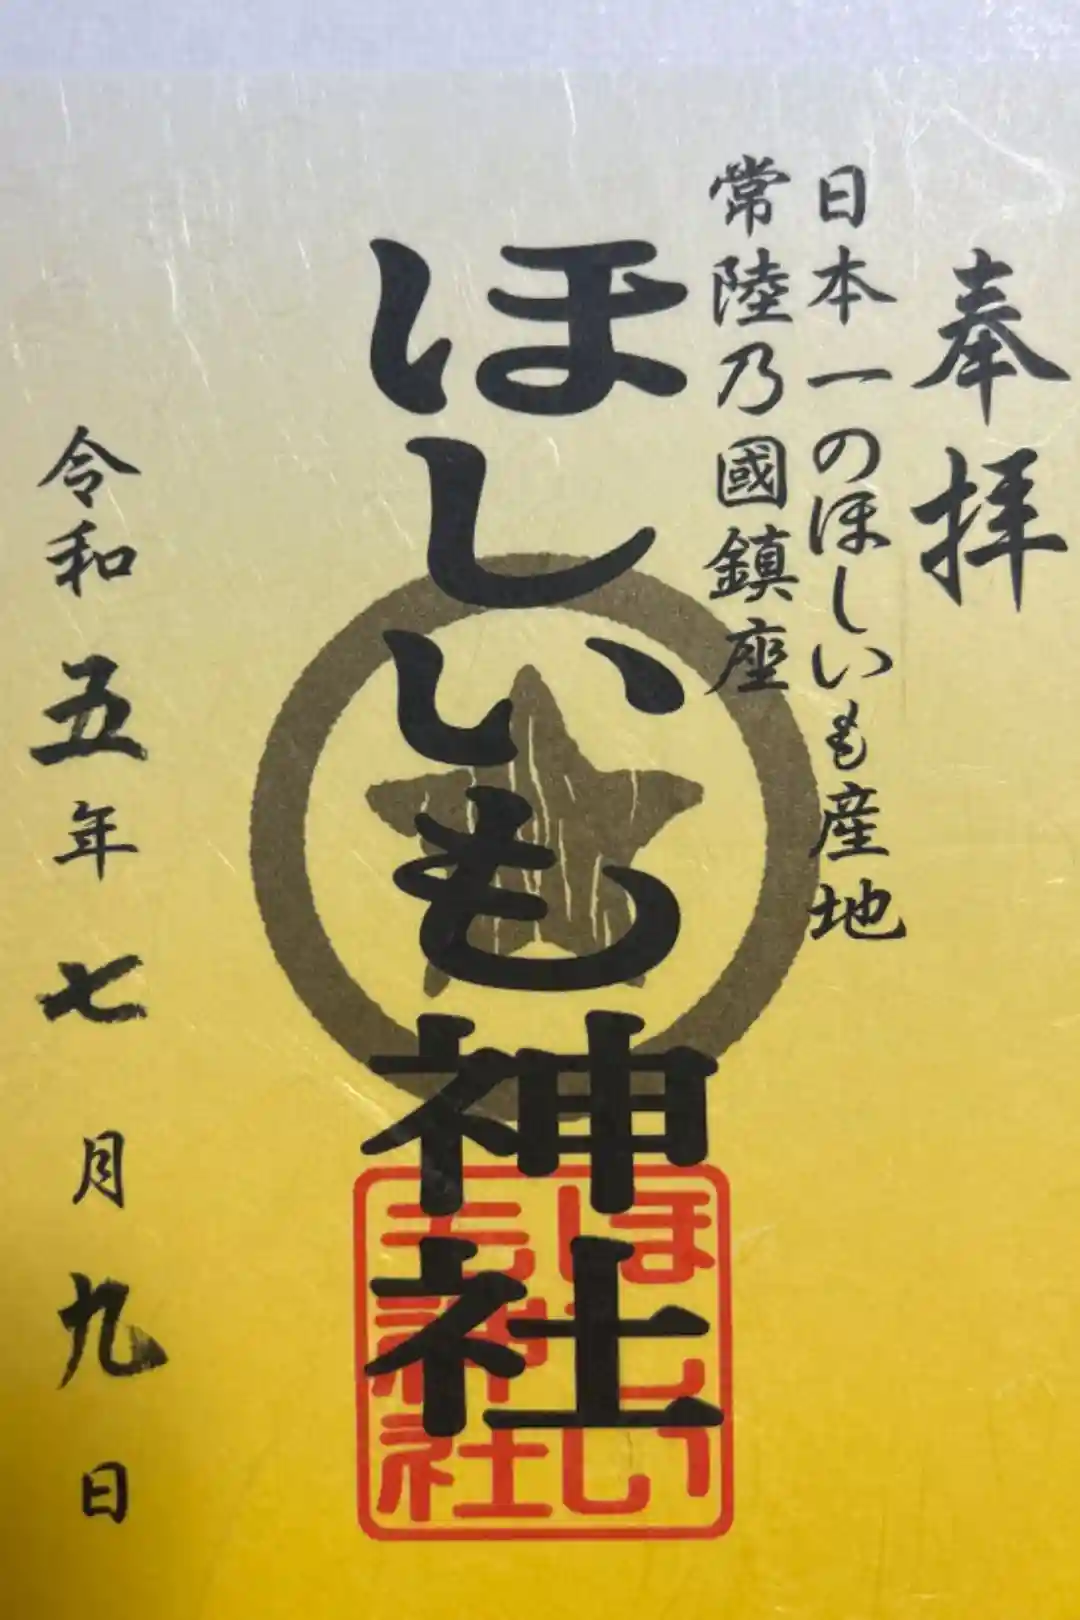 奉拝
日本一のほしいも産地
常陸乃國鎮座
ほしいも神社
ほしい
も神社
令和五年七月九日